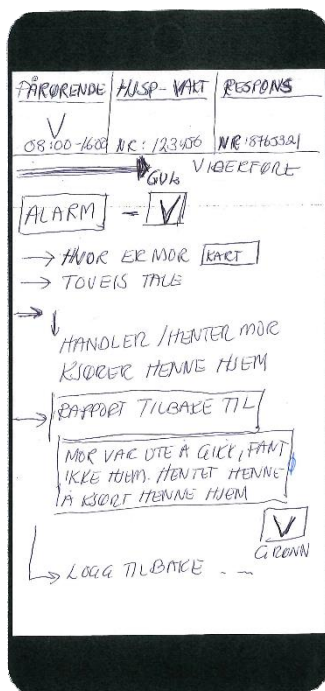 PÅRØRENDE HJSP-VAKT RESPONS
V
08:00-1600 NR: 123456 NR:
GUL VIDERFØRE
ALARM - V
→ HVOR ER MOR KART
→ TOVEIS TALE
→ ↓
HANDLER / HENTER MOR
KJØRER HENNE HJEM
→ RAPPORT TILBAKE TIL
MOR VAR UTE Å GIKK, FANT
IKKE HJEM. HENTET HENNE
Å KJØRT HENNE HJEM
V
GRØNN
→ LOGG TILBAKE - - -